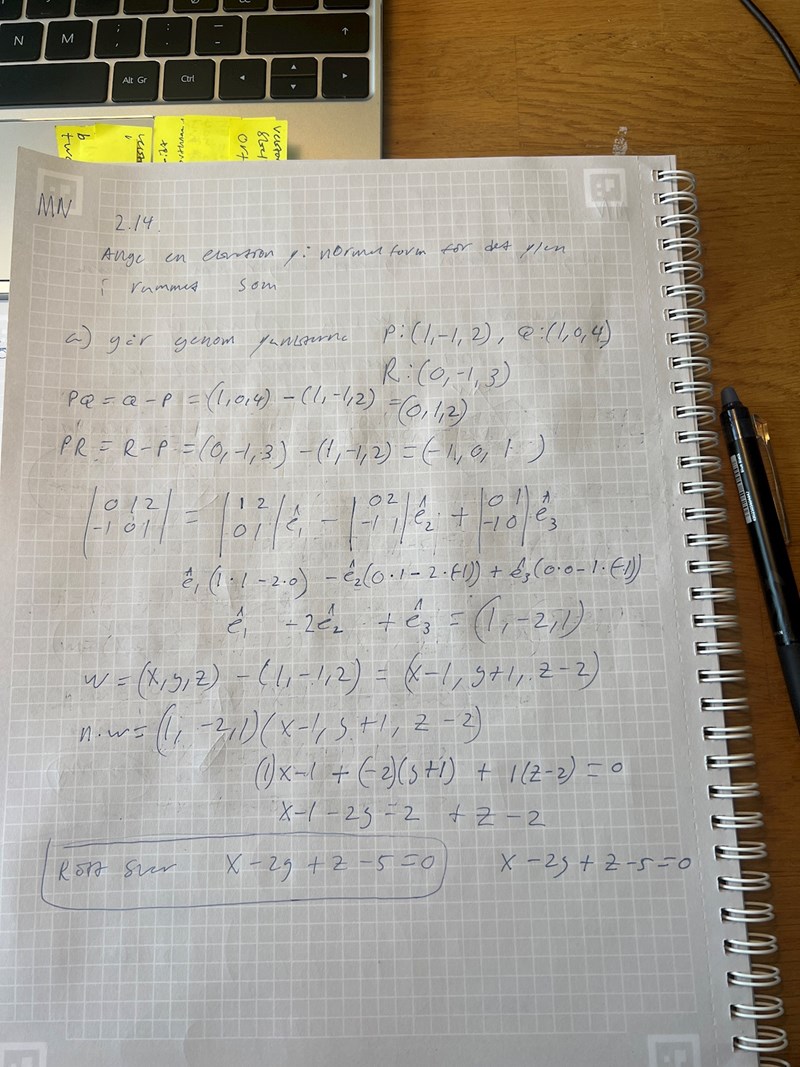 N
M
;
,
:
.
_
-
↑
Alt Gr
Ctrl
◄
▲
▼
►
MN
2.14.
Ange en ekvation på normalform för det plan
i rummet som
a) går genom punkterna P:(1,-1,2), Q:(1,0,4)
R:(0,-1,3)
PQ = Q-P = (1,0,4) - (1,-1,2) = (0,1,2)
PR = R-P = (0,-1,3) - (1,-1,2) = (-1,0,1)
|0 1 2| = |1 2| ê₁ - |0 2| ê₂ + |0 1| ê₃
|-1 0 1| |0 1| |-1 1| |-1 0|
ê₁(1·1-2·0) - ê₂(0·1-2·(-1)) + ê₃(0·0-1·(-1))
ê₁ -2ê₂ + ê₃ = (1,-2,1)
w = (x,y,z) - (1,-1,2) = (x-1, y+1, z-2)
n·w = (1,-2,1)(x-1, y+1, z-2)
(1)x-1 + (-2)(y+1) + 1(z-2) = 0
x-1-2y-2 + z-2
Rätt svar x-2y+z-5=0 x-2y+z-5=0